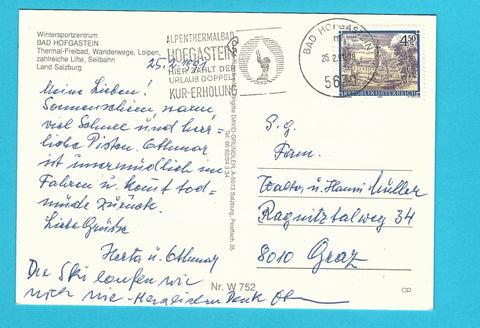 Wintersportzentrum
BAD HOFGASTEIN
Thermal-Freibad, Wanderwege, Loipen,
zahlreiche Lifte, Seilbahn
Land Salzburg
25.2.1991
ALPENTHERMALBAD
HOFGASTEIN
HIER ZÄHLT DER
URLAUB DOPPELT
KUR-ERHOLUNG
BAD HOFGASTEIN
5630
4.50
REPUBLIK ÖSTERREICH
Meine Lieben!
Sonnenschein, warm,
viel Schnee und herr-
liche Pisten. Othmar
ist unermüdlich im
Fahren u. kommt tod-
müde zurück.
Liebe Grüße
Herta u. Othmar
Die Ski laufen wie
noch nie - Herzlichen Dank
S.g.
Fam.
Walter u. Hanni Müller
Ragnitztalweg 34
8010 Graz
Brigitte DAVID-GRÜNDLER, A-5013 Salzburg, Postfach 35
Nr. W 752
CP